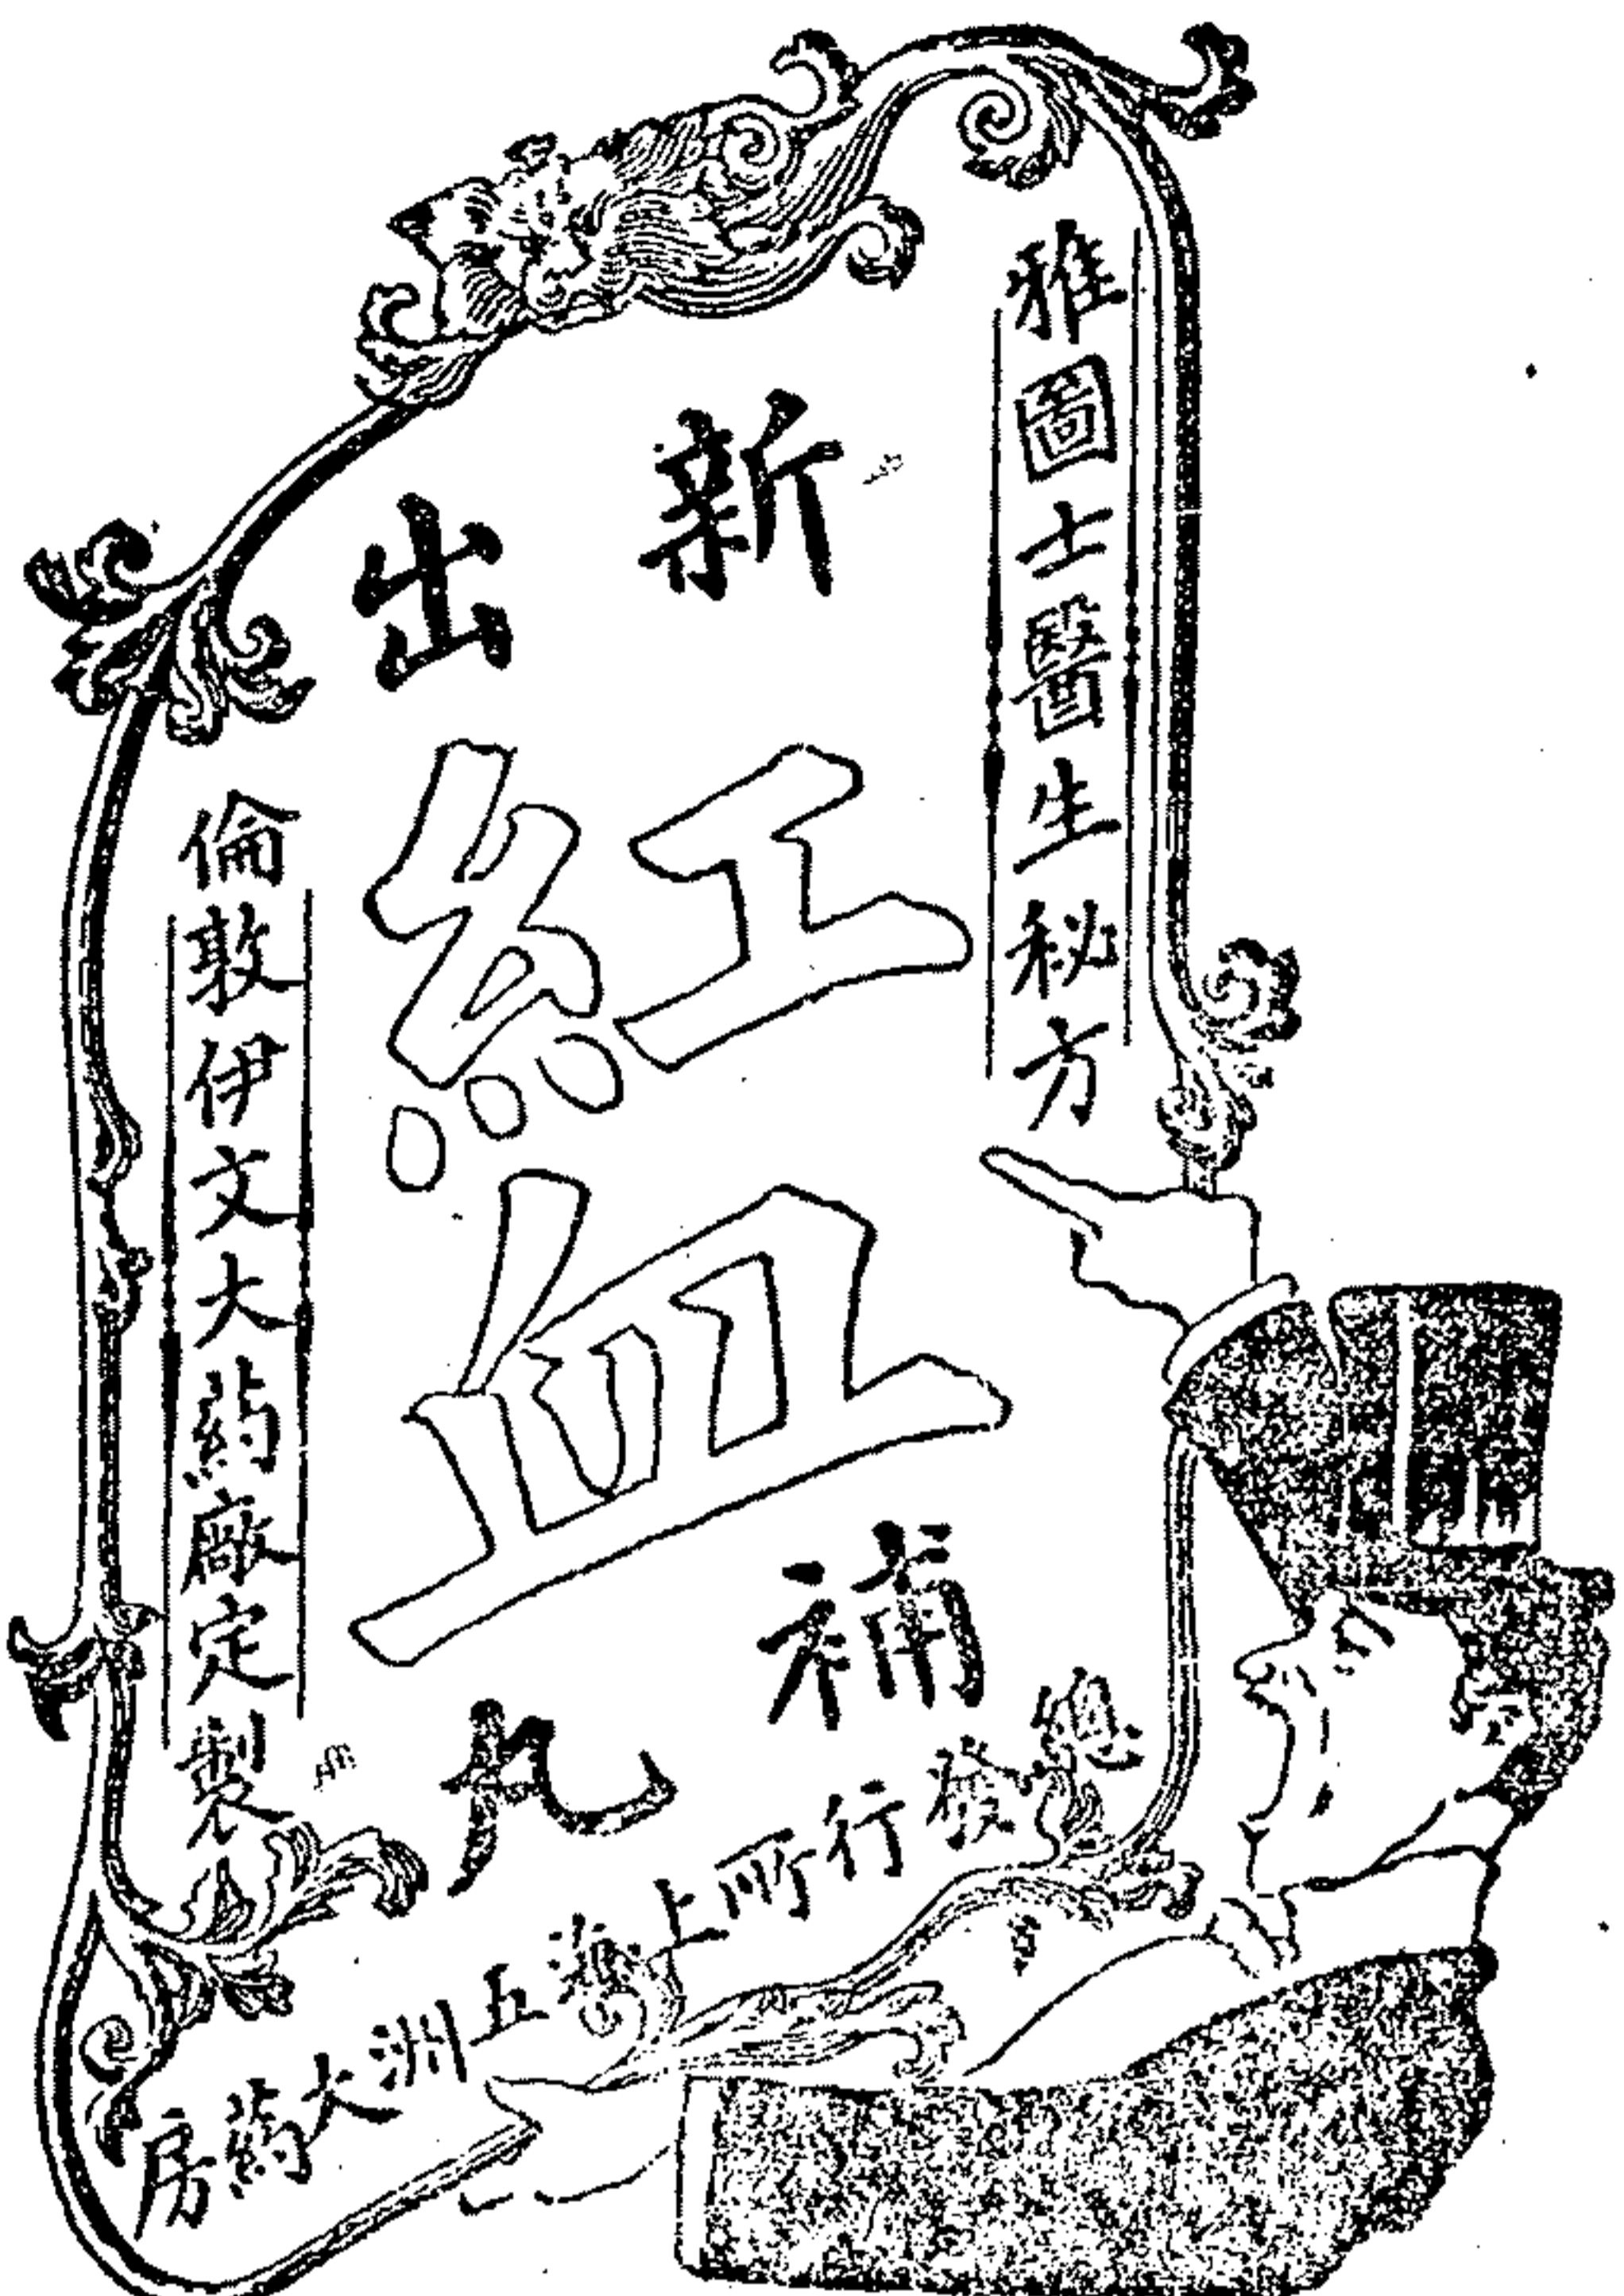 雅圖士醫生秘方
新出
紅血
補丸
倫敦伊文大葯廠定製
總發行所上海五洲大葯房